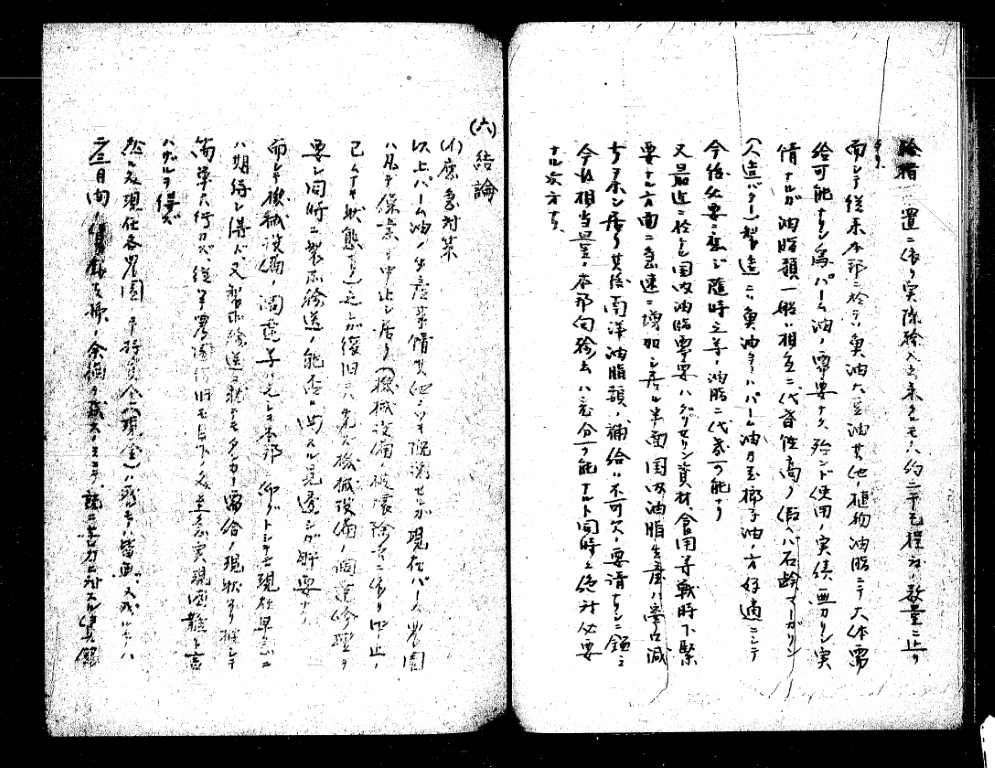 置ニ依リ実際輸入出来タルモノハ約二千屯程度ノ数量ニ止リ
タリ
而シテ従来本邦ニ於テハ魚油大豆油其他ノ植物油脂ニテ大体需
給可能ナリシ為パーム油ノ需要ナク殆ンド使用ノ実績無カリシ実
情ナルガ油脂類一般ハ相互ニ代替性高ク仮ヘバ石鹸マーガリン
(人造バター)製造ニハ魚油ヨリハパーム油乃至椰子油ノ方好適ニシテ
今後必要ニ応ジ随時之等ノ油脂ニ代ヘ可能ナリ
又最近ニ於ケル国内油脂需要ハグリセリン資材、食用等戦時下緊
要ナル方面ニ急速ニ増加シ居ル半面国内油脂生産ハ寧ロ減
少シ居リ其後南洋油脂類ノ補給ハ不可欠ノ要請ナルニ鑑ミ
今後相当量ノ本邦向輸出ハ充分可能ナルト同時ニ絶対必要
ナル次第ナリ
(六)結論
(イ)應急対策
以上パーム油ノ生産事情其他ニツキ概説セルガ現在パーム農園
ハ凡テ操業ヲ中止シ居リ(機械設備ノ破壊除去ニ依リ中止ノ
已ムナキ状態ナリ)之ガ復旧ハ先ズ機械設備ノ調達修理ヲ
要シ同時ニ製品輸送ノ能否ニ関スル見透シガ肝要ナリ
而シテ機械設備ノ調達等ハ之レヲ本邦ニ仰グトシテモ現在早急ニ
ハ期待シ得ズ、又製品輸送ニ就テモタンカー需給ノ現状ヨリ推シテ
簡単ニ行カズ、従ツテ農園復旧モ目下ノ處早急実現困難ト言
ハザルヲ得ズ
然ル処現在各農園ノ手持資金(現金)ハ殆ド皆無